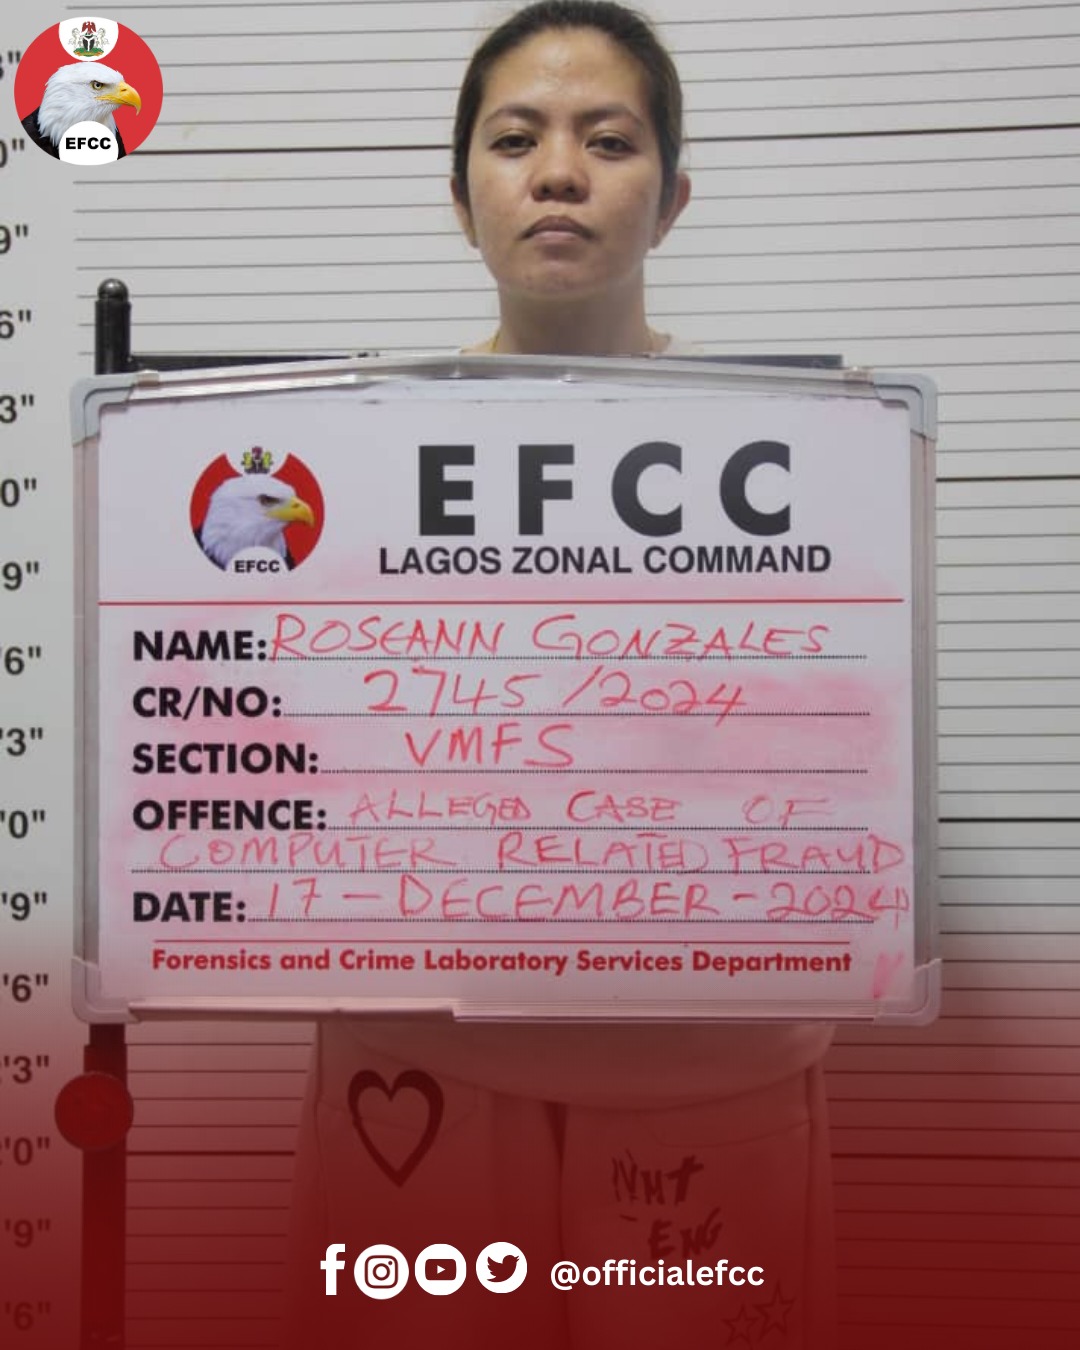 EFCC
3"
0"
9"
6"
3"
0"
9"
'6"
'3"
'0"
'9"
'6"
'3"
'0"
'9"
'6"
EFCC
EFCC
LAGOS ZONAL COMMAND
NAME: ROSEANN GONZALES
CR/NO: 2745/2024
SECTION: VMFS
OFFENCE: ALLEGED CASE OF
COMPUTER RELATED FRAUD
DATE: 17-DECEMBER-2024
Forensics and Crime Laboratory Services Department
@officialefcc